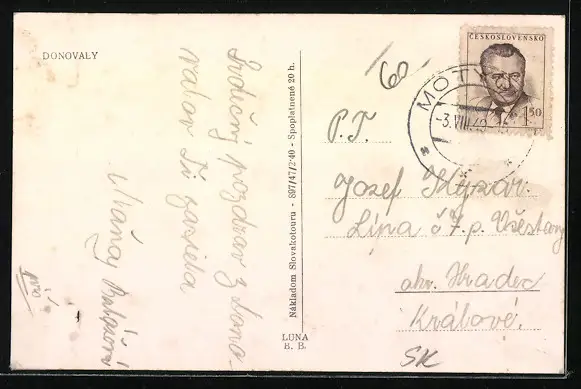 DONOVALY
Srdečný pozdrav z Dono-
valov Ti zasiela
Nákladom Slovakotouru - 897/47/2·40 - Spoplatnené 20 h.
LUNA
B. B.
60
ČESKOSLOVENSKO
1·50
MOTY
-3.VIII.49
P.T.
Jozef
Lípa č 7. p. Všestary
okr. Hradec
Králové.
SK